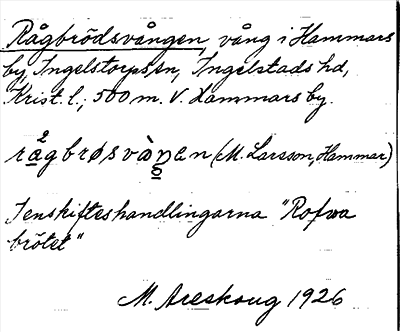 Rågbrödsvången, vång i Hammars
by, Ingelstorps sn, Ingelstads hd,
Krist. l.; 500 m. V. Hammars by.
rågbrøsvàŋen (M. Larsson, Hammar)
I enskifteshandlingarna "Rofwa
brötet"
M. Areskoug 1926